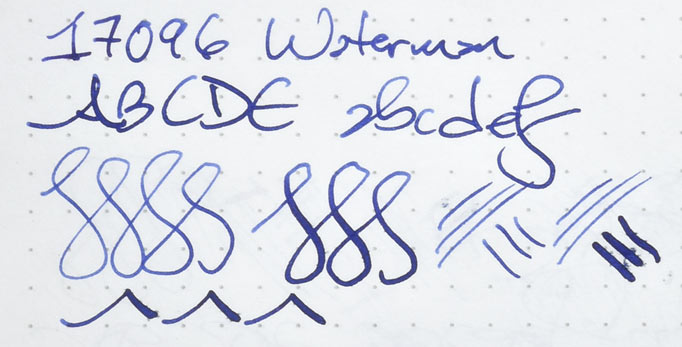 17096 Waterman
ABCDE abcdef